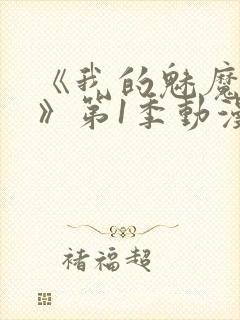 《我的魅魔
》第1季動漫
褚福超